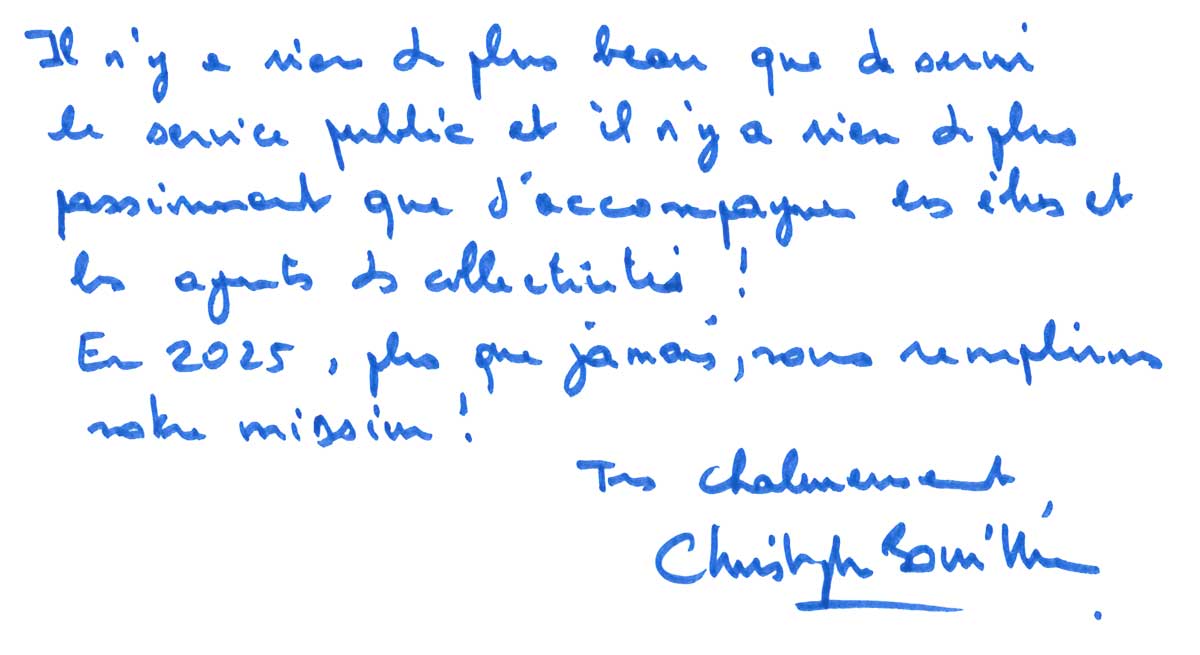 Il n'y a rien de plus beau que de servir
le service public et il n'y a rien de plus
passionnant que d'accompagner les élus et
les agents des collectivités !
En 2025, plus que jamais, nous remplirons
notre mission !
Très chaleureusement
Christophe Bouillon